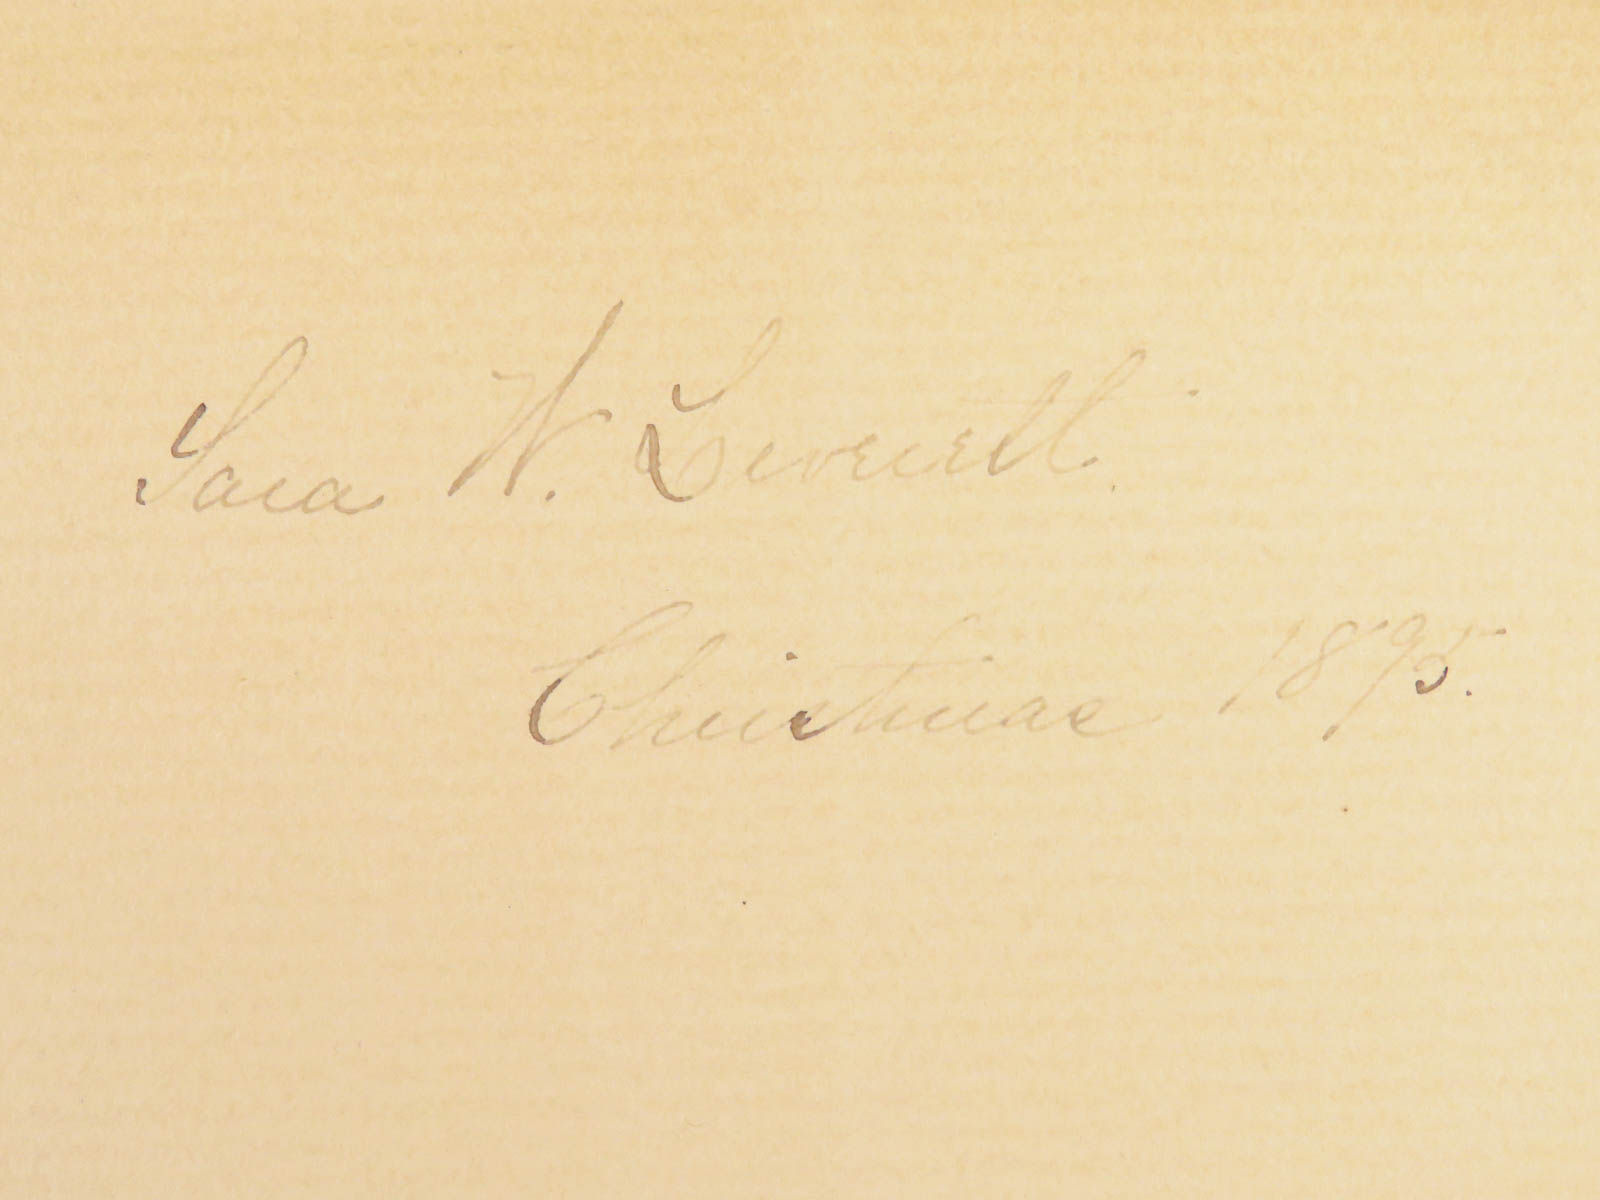 Sara W. Leverett.
Christmas 1895.